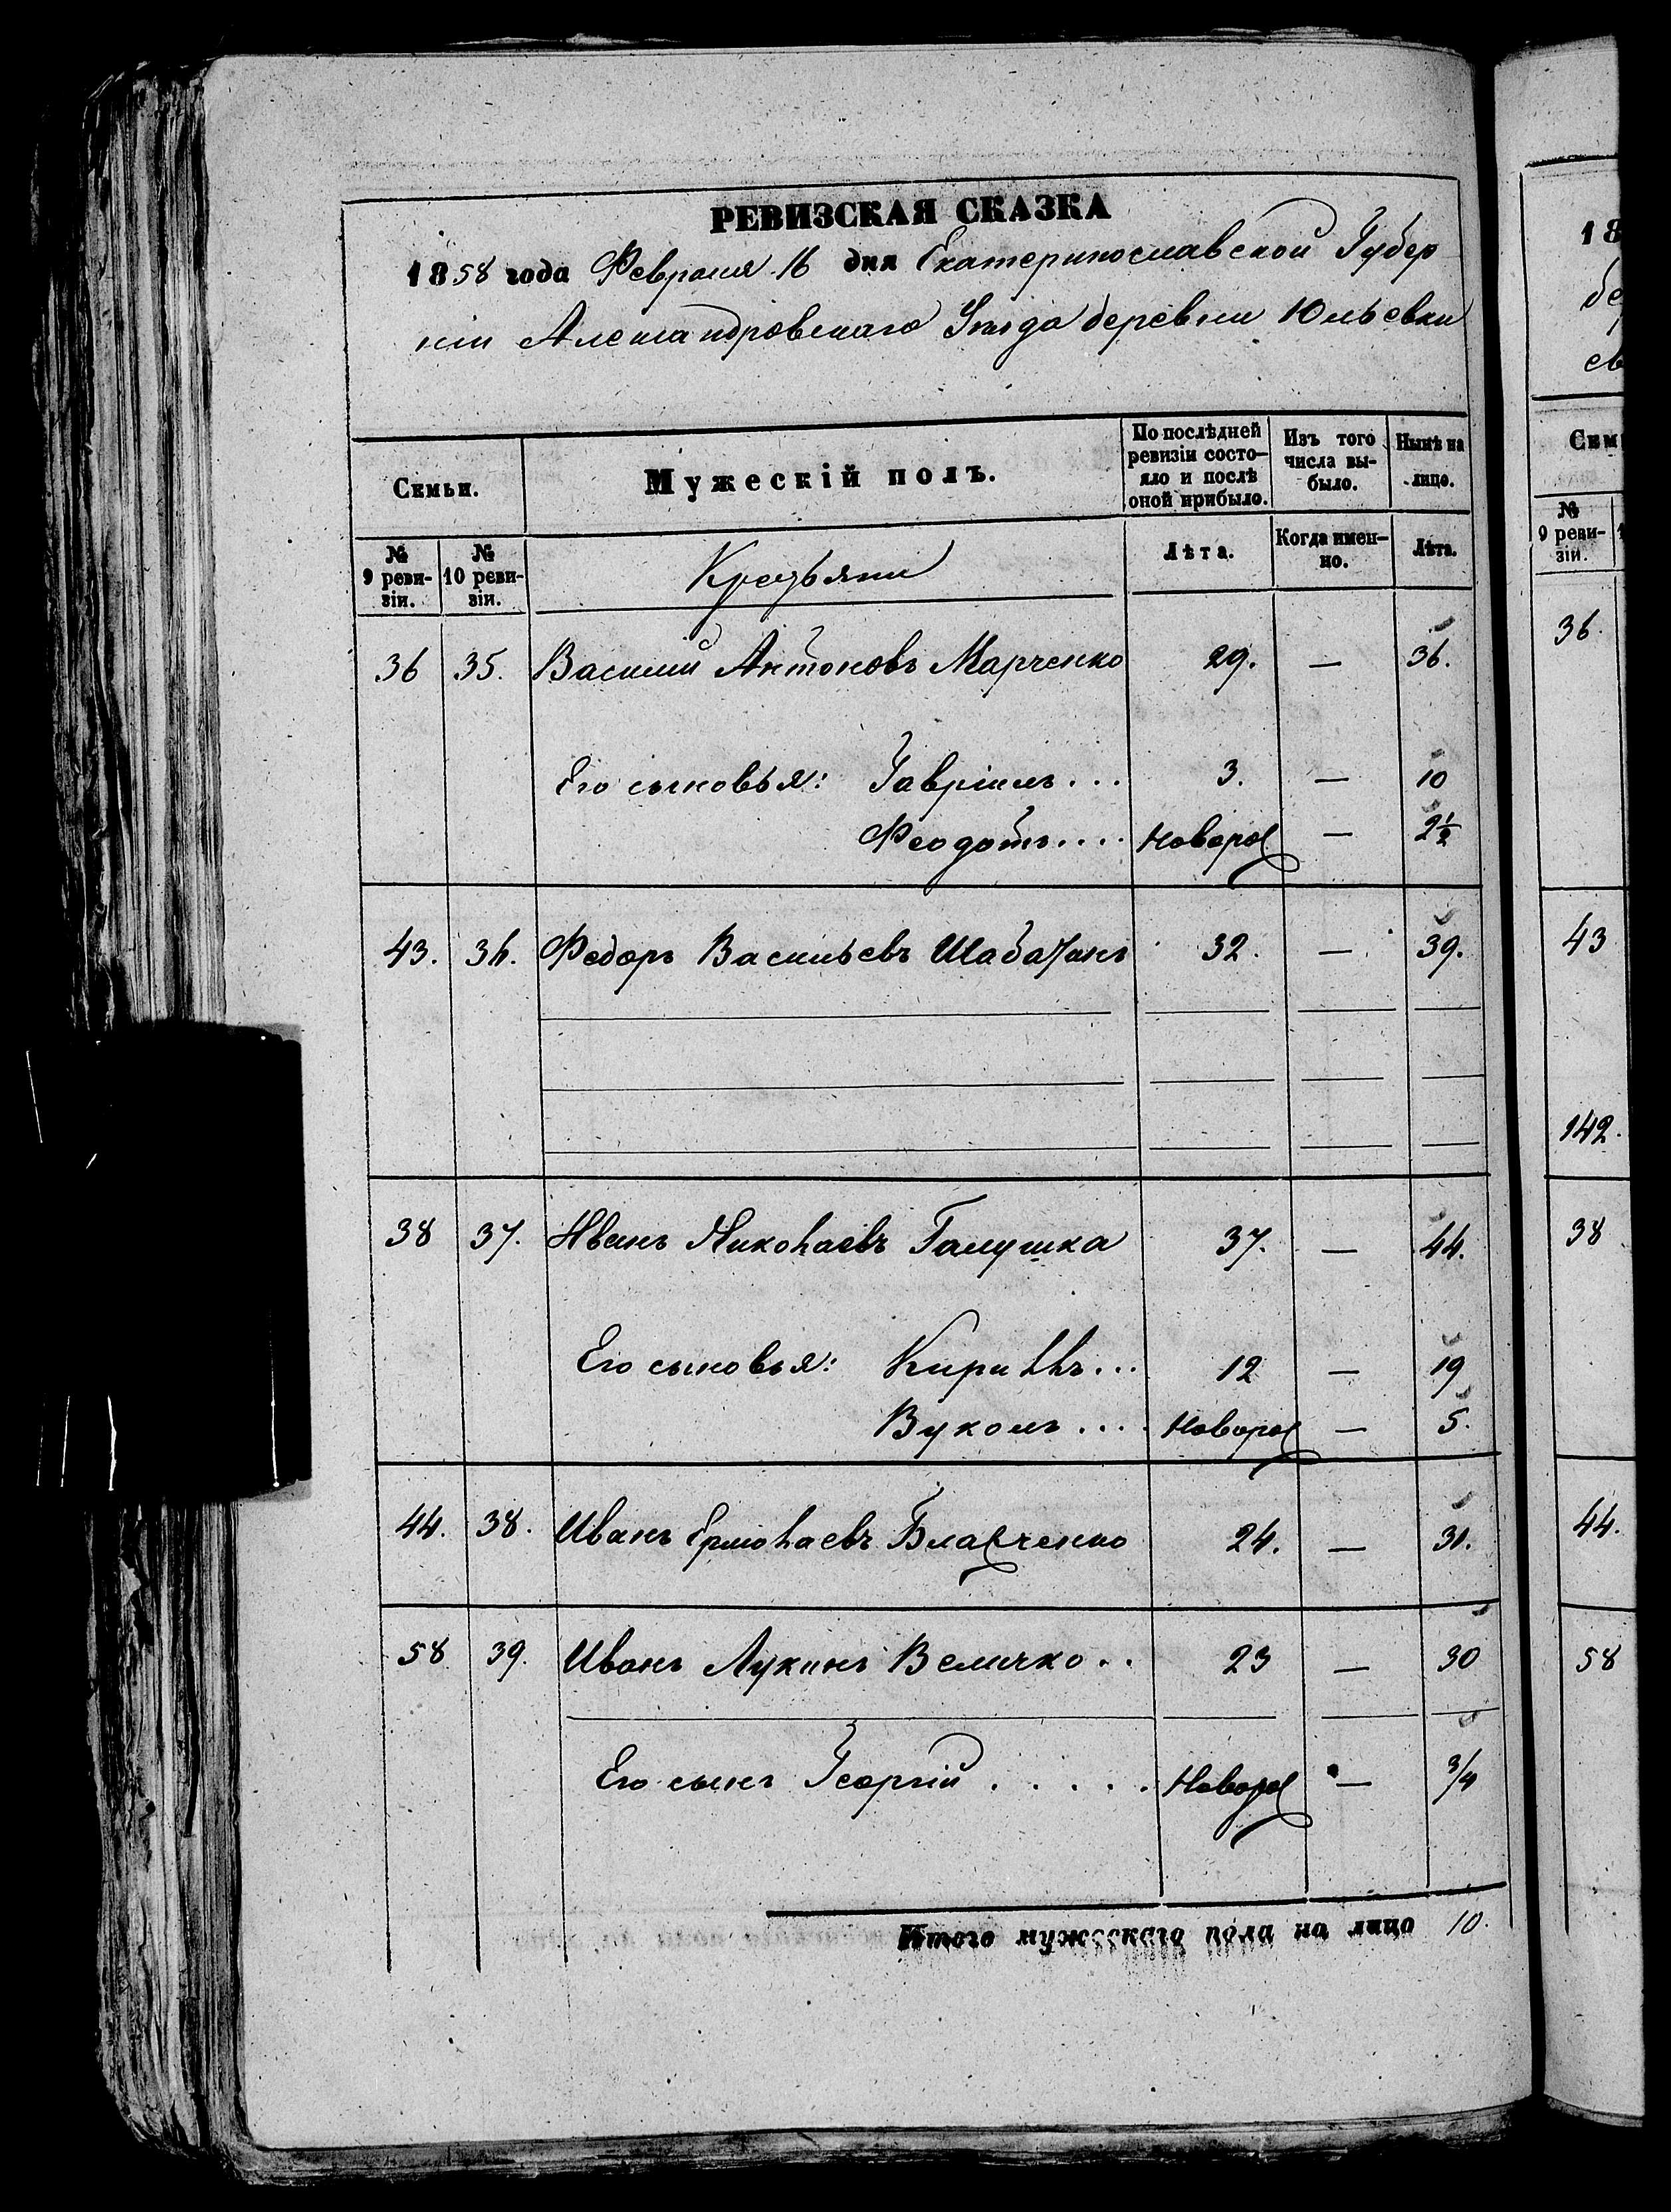 РЕВИЗСКАЯ СКАЗКА
1858 года Февраля 16 дня Екатеринославской Губер
ніи Александровскаго Уѣзда деревни Юльевки
Семьи. Мужескій полъ. По послѣдней ревизіи состояло и послѣ оной прибыло. Изъ того числа выбыло. Нынѣ на лицо.
№ 9 ревизіи. № 10 ревизіи. Крестьяни Лѣта. Когда именно. Лѣта.
36 35. Василій Антоновъ Марченко 29. — 36.
Его сыновья: Гавріилъ... 3. — 10
Феодотъ.... Наворо — 2½
43. 36. Федоръ Васильевъ 32. — 39.
38 37. Иванъ Николаевъ Галушка 37. — 44.
Его сыновья: Кириллъ... 12 — 19
Вуколъ.... Новоро — 5.
44. 38. Иванъ Ермолаевъ 24. — 31.
58 39. Иванъ Лукинъ Величко.. 23 — 30
Его сынъ Георгій..... Новоро — 3/4
Итого мужескаго пола на лицо 10.
18
Сем
№ 9 ревизіи.
36.
43
142.
38
44.
58